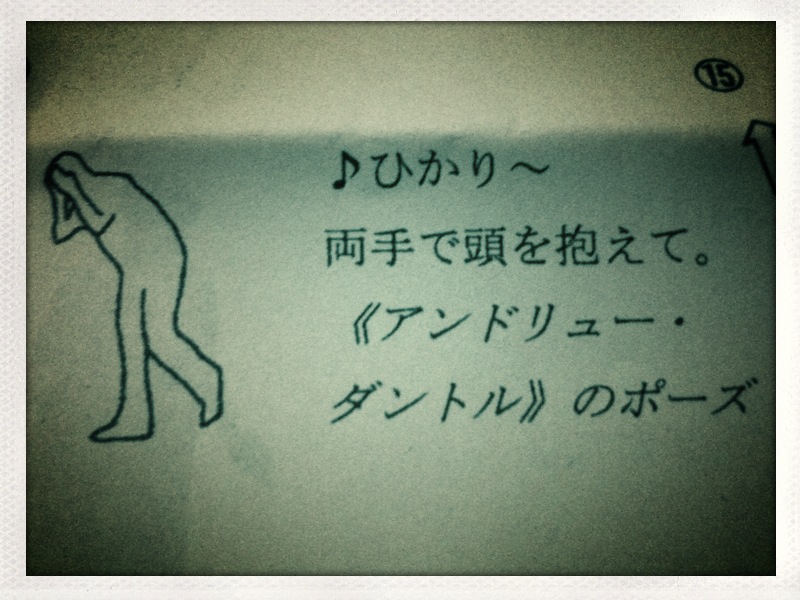 ⑮
♪ひかり～
両手で頭を抱えて。
《アンドリュー・
ダントル》のポーズ